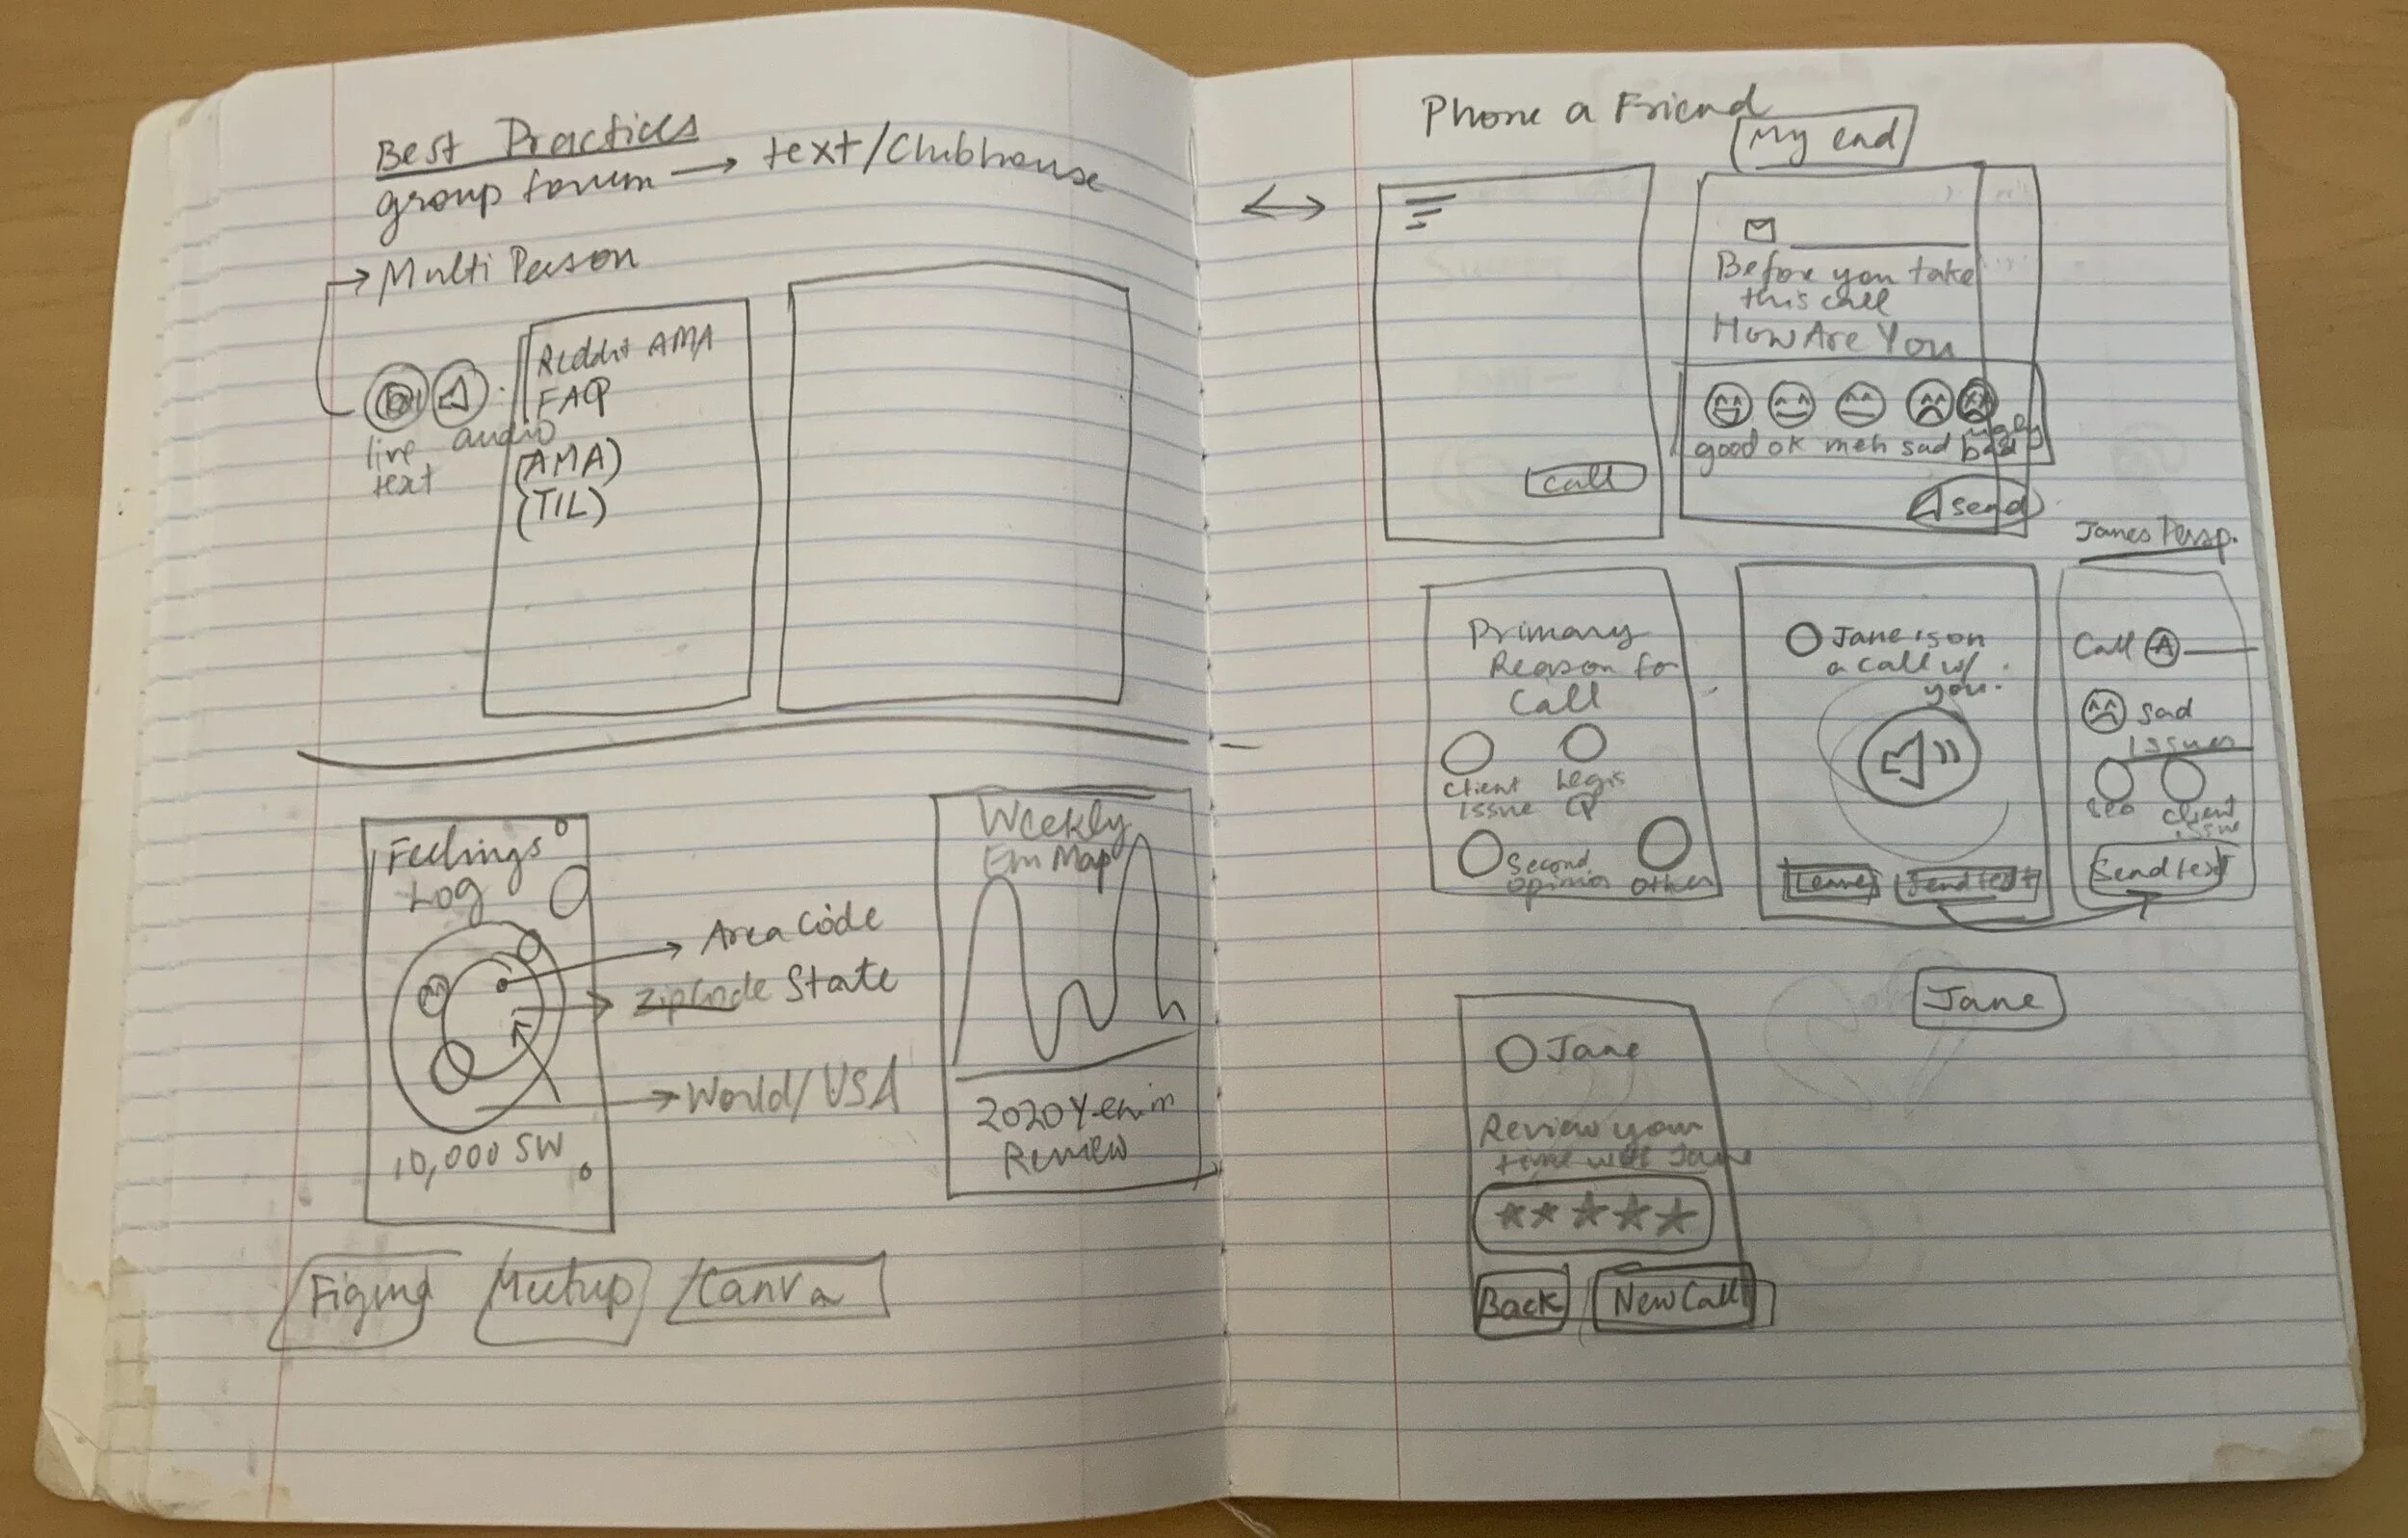 Best Practices
group forum → text/Clubhouse
→ Multi Person
live text
audio
Reddit AMA
FAQ
(AMA)
(TIL)
Feelings
Log
10,000 SW
→ Area Code
→ Zipcode State
→ World/USA
Weekly
Em Map
2020 Y-
Review
Figma
Meetup
Canva
Phone a Friend
My end
call
Before you take
this call
How Are You
good ok meh sad bad
send
Primary
Reason for
Call
Client
issue
Legis
Second
opinion
other
Jane is on
a call w/
you.
Leave
Send text
Janes Persp.
Call A
sad
issues
client
issue
Send text
Jane
Jane
Review your
time with Jane
Back
New Call